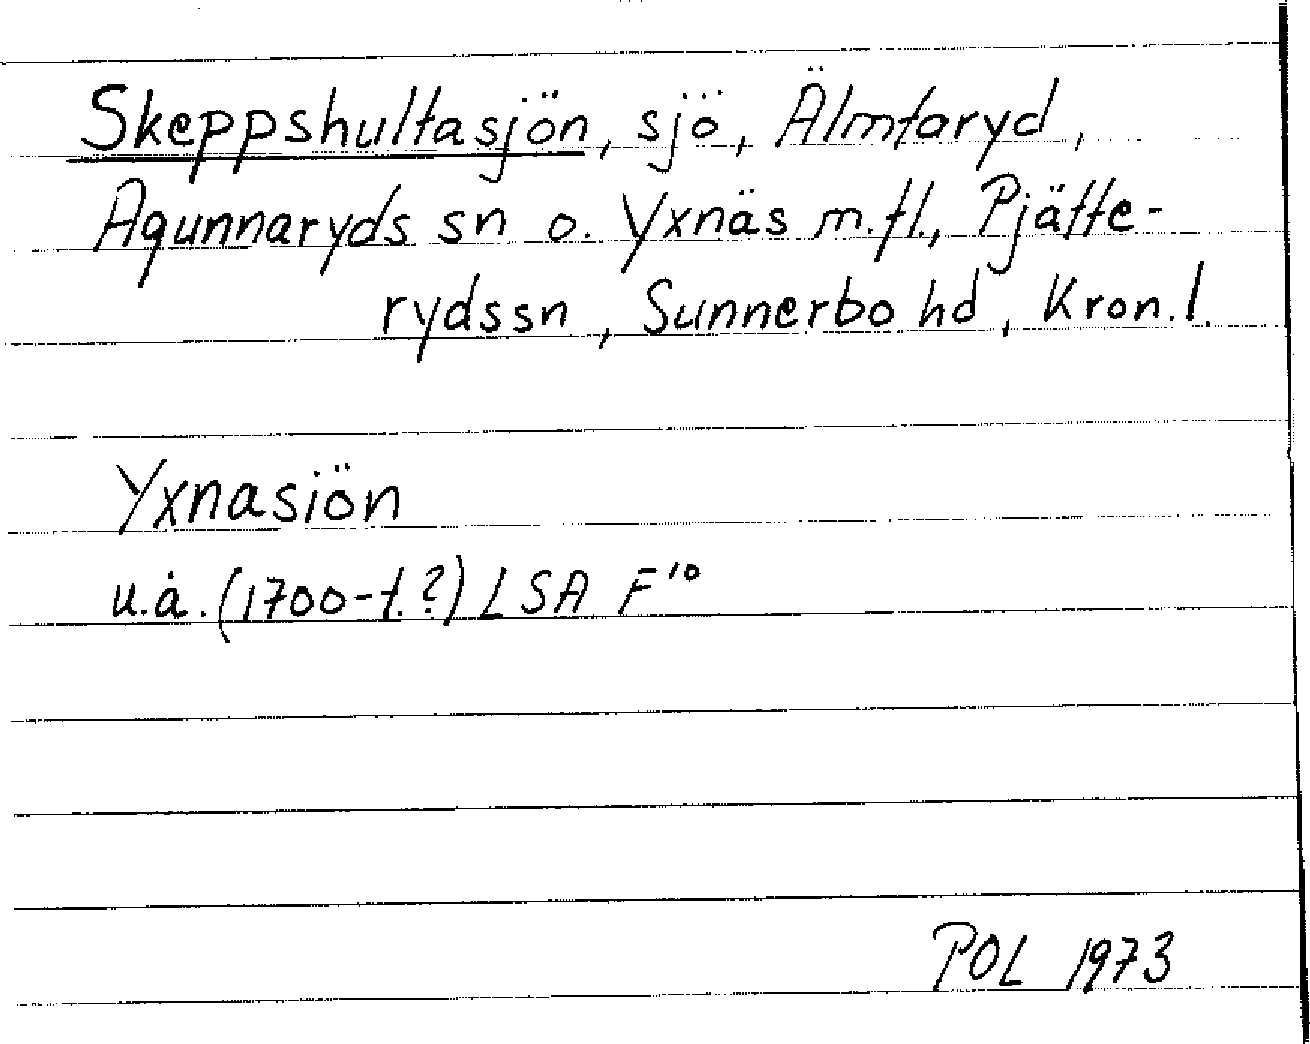 Skeppshultasjön, sjö, Älmtaryd,
Agunnaryds sn o. Yxnäs m.fl., Pjätte-
rydssn, Sunnerbo hd, Kron.l.
Yxnasiön
u.å. (1700-t.?) LSA F10
POL 1973